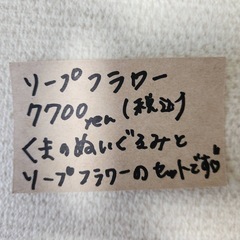 ソープフラワー
7700yen(税込)
くまのぬいぐるみと
ソープフラワーのセットです